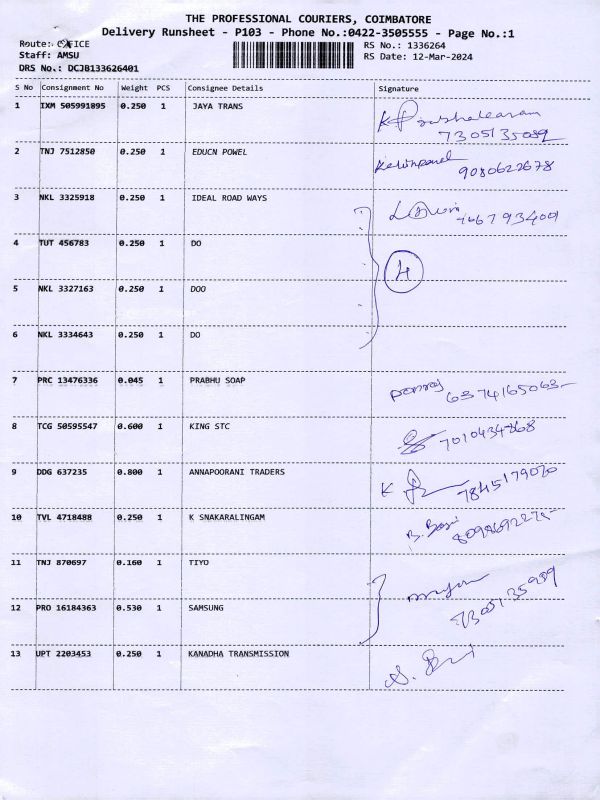 THE PROFESSIONAL COURIERS, COIMBATORE
Delivery Runsheet - P103 - Phone No.:0422-3505555 - Page No.:1
Route: OFFICE
RS No.: 1336264
Staff: AMSU
RS Date: 12-Mar-2024
DRS No.: DCJB133626401
S No Consignment No Weight PCS Consignee Details Signature
1 IXM 505991895 0.250 1 JAYA TRANS
7305135089
2 TNJ 7512850 0.250 1 EDUCN POWEL
9080622678
3 NKL 3325918 0.250 1 IDEAL ROAD WAYS
4 TUT 456783 0.250 1 DO
4
5 NKL 3327163 0.250 1 DOO
6 NKL 3334643 0.250 1 DO
7 PRC 13476336 0.045 1 PRABHU SOAP
6374165063
8 TCG 50595547 0.600 1 KING STC
7010434768
9 DDG 637235 0.800 1 ANNAPOORANI TRADERS
K 7845179070
10 TVL 4718488 0.250 1 K SNAKARALINGAM
11 TNJ 870697 0.160 1 TIYO
12 PRO 16184363 0.530 1 SAMSUNG
7305135989
13 UPT 2203453 0.250 1 KANADHA TRANSMISSION